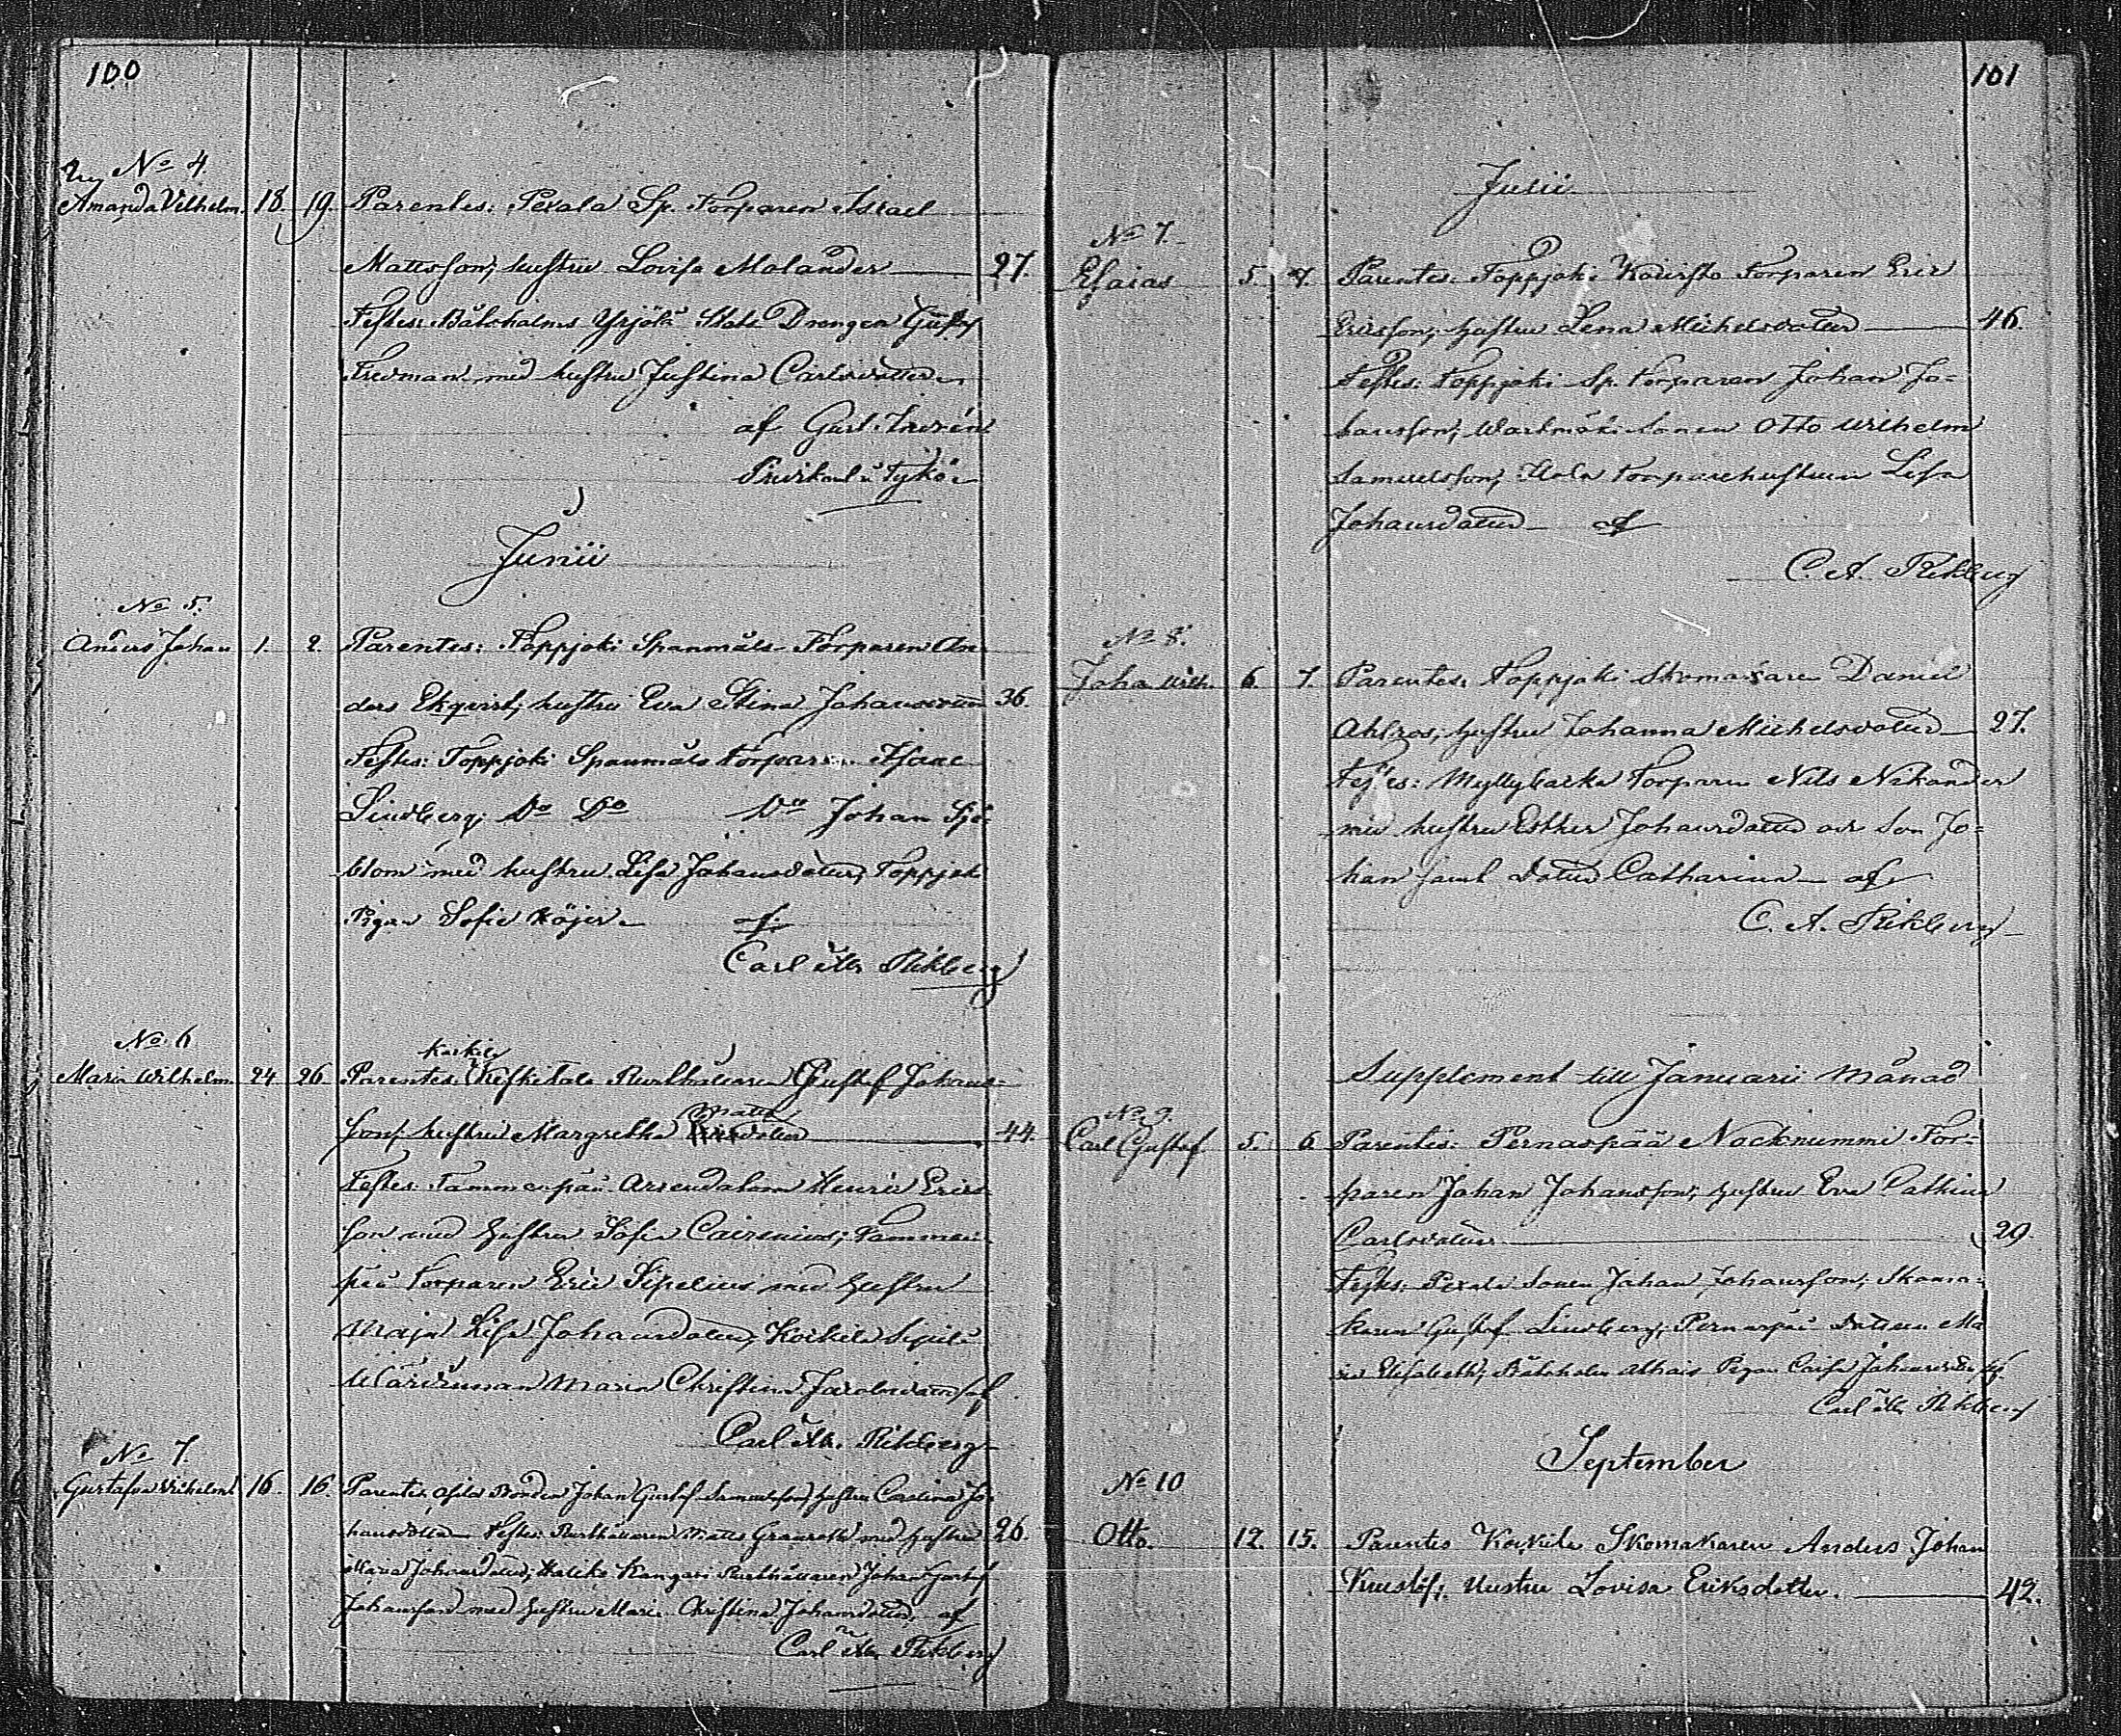 100
No 4.
Amanda Vilhelm. 18. 19. Parentes: Pexala Sp. Torparen Israel
Mattsson, hustru Lovisa Molander 27.
Testes: Yrjölä Stats Drengen Gustaf
Fredman med hustru Justina Carlsdotter
af Gust.
Tykö
Junii
No 5.
Anders Johan 1. 2. Parentes: Toppjoki Spanmåls Torparen An-
ders Ekqvist, hustru Eva Stina Johansdotter 36.
Testes: Toppjoki Spanmåls torparen Isaac
Lindberg; Do Do Do Johan Sjö-
blom med hustru Lisa Johansdotter, Toppjoki
Pigan Sofie Höjer af
Carl Ab. Rikberg
No. 6
Maria Wilhelm. 24 26 Parentes: Kisketala Rusthållaren Gustaf Johans-
son, hustru Margretha dotter 44.
Matts
Testes: Tammenpää Arrendatorn Henric Erics-
son med hustru Sofia Tammen-
pää torparen Eric Sipelius med hustru
Maja Lisa Johansdotter, Koskila
Maria Christina Jacobsdotter af
Carl Ab. Rikberg
No 7.
Gustafva Vilhelm. 16. 16. Parentes: Bonden Johan Gustaf Samuelsson, hustru Carolina Jo-
hansdotter Testes: Rusthållaren Matts Granroth med hustru 26.
Maria Johansdotter, Haliko Kangari Rusthållaren Johan Gustaf
Johansson med hustru Maria Christina Johansdotter, af
Carl Ab. Rikberg
101
Julii
No 7.
Esaias 5. 7. Parentes: Toppjoki Koivisto Torparen Eric
Ericsson, hustru Lena Michelsdotter 46.
Testes: Toppjoki Sp. torparen Johan Jo-
hansson, sonen Otto Wilhelm
Samuelsson, torparehustrun Lisa
Johansdotter af
C. A. Rikberg
No 8.
Joha Wilh. 6. 7. Parentes: Toppjoki Skomakaren Daniel
Ahlros, hustru Johanna Michelsdotter 27.
Testes: Myllybacka Torparen Nils Nikander
med hustru Esther Johansdotter och son Jo-
han samt dotter Catharina af
C. A. Rikberg
Supplement till Januarii Månad
No 9.
Carl Gustaf. 5. 6 Parentes: Pernaspää Nocknummi Tor-
paren Johan Johansson, hustru Eva Cathrina
Carlsdotter 29.
Testes: Pexala Sonen Johan Johansson, Skoma-
karen Gustaf Lindberg, Pernaspää Dottren Ma-
ria Elisabeth, Pigan Caisa Johansdotter af
Carl Ab. Rikberg
September
No 10
Otto. 12. 15. Parentes Koskila Skomakaren Anders Johan
Hustru Lovisa Eriksdotter. 42.